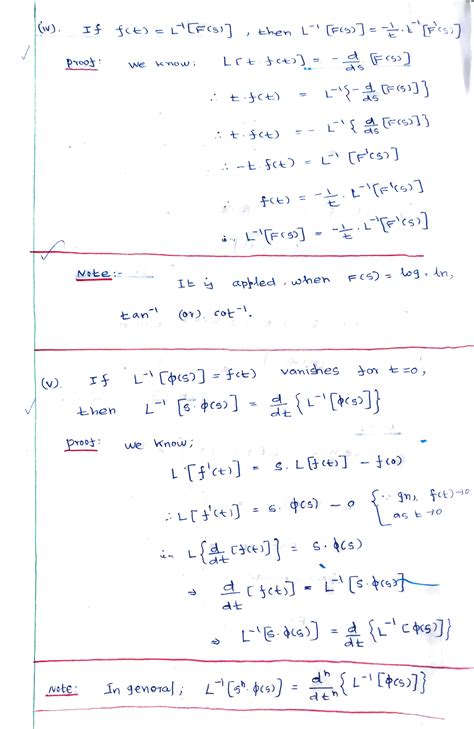 (iv). If f(t) = L⁻¹[F(s)], then L⁻¹[F(s)] = -1/t · L⁻¹[F'(s)]
Proof: we know: L[t f(t)] = -d/ds [F(s)]
∴ t·f(t) = L⁻¹{-d/ds [F(s)]}
∴ t·f(t) = - L⁻¹{d/ds [F(s)]}
∴ -t·f(t) = L⁻¹[F'(s)]
f(t) = -1/t · L⁻¹[F'(s)]
i., L⁻¹[F(s)] = -1/t · L⁻¹[F'(s)]
Note:- It is appled, when F(s) = log, ln,
tan⁻¹ (or) cot⁻¹.
(v). If L⁻¹[ϕ(s)] = f(t) vanishes for t=0,
then L⁻¹[s·ϕ(s)] = d/dt {L⁻¹[ϕ(s)]}
Proof: we know;
L[f'(t)] = s. L[f(t)] - f(0)
∴ L[f'(t)] = s. ϕ(s) - 0 {∵ gn, f(t)→0
as t→0
i., L{d/dt [f(t)]} = s. ϕ(s)
⇒ d/dt [f(t)] = L⁻¹[s·ϕ(s)]
⇒ L⁻¹[s·ϕ(s)] = d/dt {L⁻¹[ϕ(s)]}
Note: In general; L⁻¹[sⁿ·ϕ(s)] = dⁿ/dtⁿ {L⁻¹[ϕ(s)]}